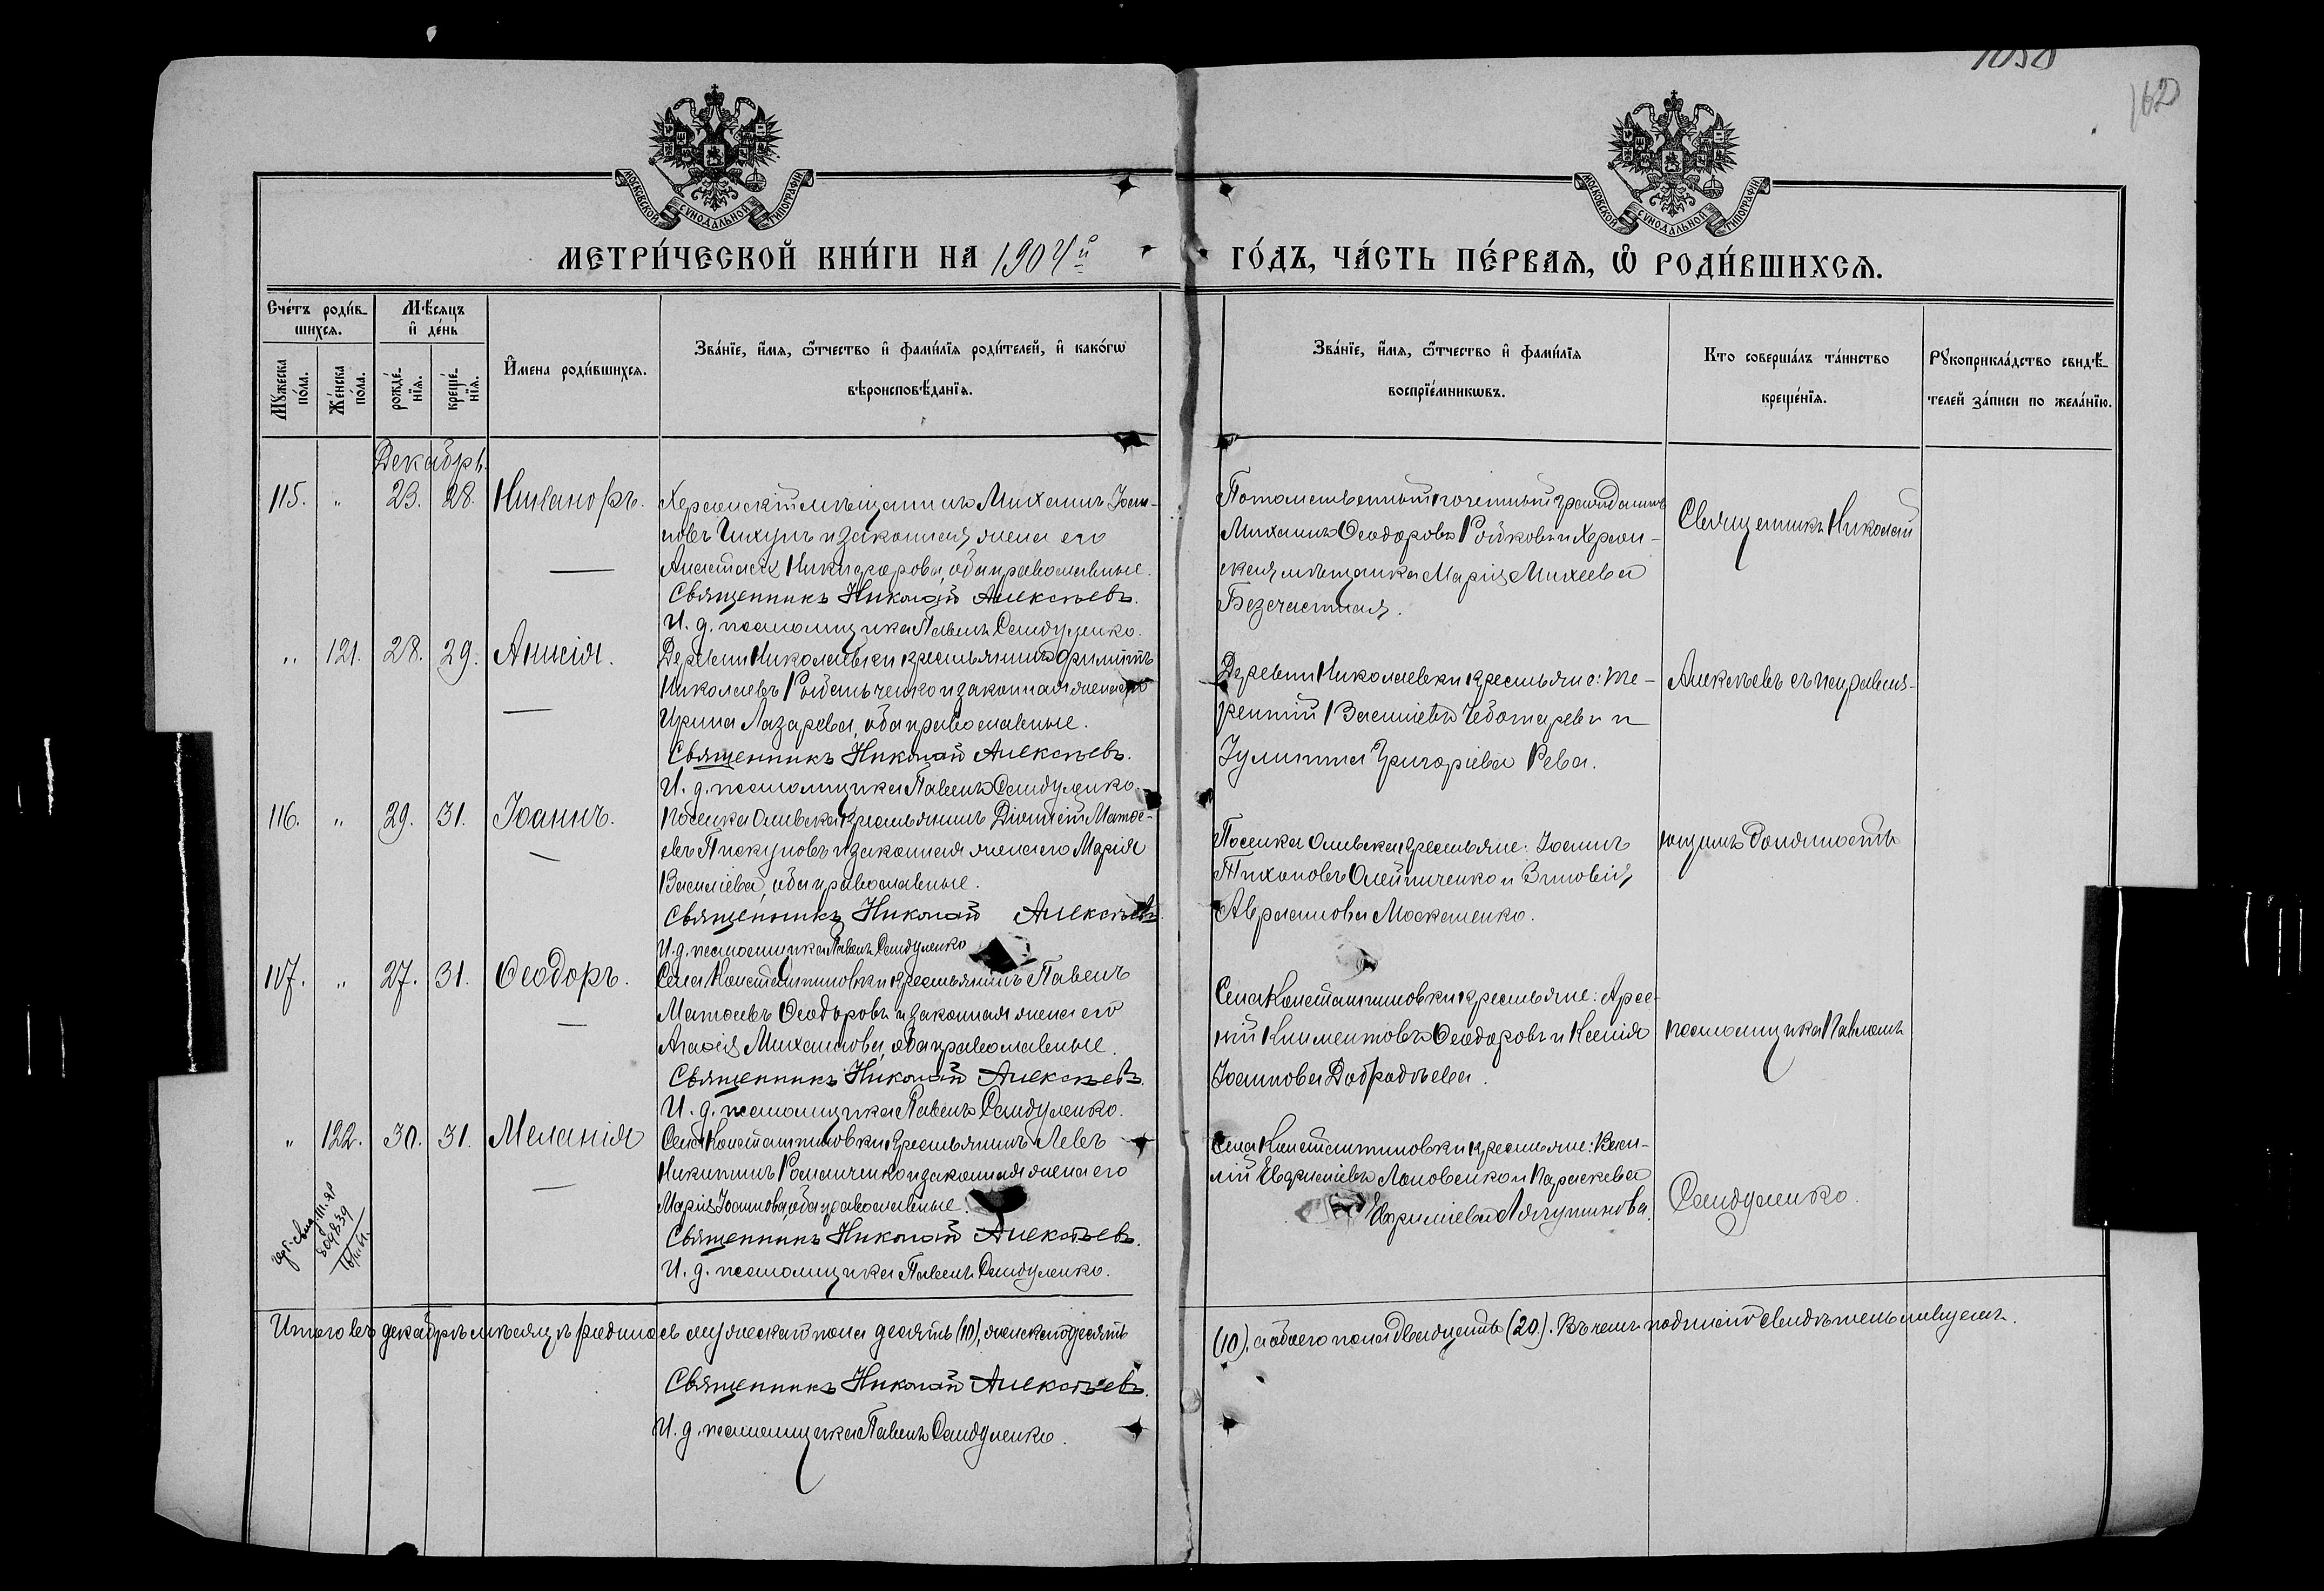 162
МОСКОВСКОЙ СУНОДАЛЬНОЙ ТИПОГРАФІИ
МОСКОВСКОЙ СУНОДАЛЬНОЙ ТИПОГРАФІИ
МЕТРИ́ЧЕСКОЙ КНИ́ГИ НА 1904й ГО́ДЪ, ЧА́СТЬ ПЕ́РВАЯ, Ѡ РОДИ́ВШИХСЯ.
Сче́тъ роди́в-
шихся.
Мѣ́сяцъ
и де́нь
Му́жеска
по́ла.
Же́нска
по́ла.
рожде́-
нїя.
креще́-
нїя.
И́мена роди́вшихся.
Зва́нїе, и́мя, ѻ҆́тчество и фами́лїя роди́телей, и како́гѡ
вѣроисповѣ́данїя.
Зва́нїе, и́мя, ѻ҆́тчество и фами́лїя
воспрїе́мникѡвъ.
Кто соверша́лъ та́инство
креще́нїя.
Рукоприкла́дство свидѣ́-
телей за́писи по жела́нїю.
Декабрь.
115. „ 23. 28. Никаноръ.
Херсонскій мѣщанинъ Михаилъ Іоан-
новъ Чихунъ и законная жена его
Анастасія Никифорова, оба православные.
Священникъ Николай Алексѣевъ.
И. д. псаломщика Павелъ Сандуленко.
Потомственный почетный гражданинъ
Михаилъ Ѳеодоровъ Рыжковъ и Херсон-
ская мѣщанка Марія Михеева
Безчастная.
Священникъ Николай
„ 121. 28. 29. Анисія.
Деревни Николаевки крестьянинъ Филиппъ
Николаевъ и законная жена его
Ирина Лазарева, оба православные.
Священникъ Николай Алексѣевъ.
И. д. псаломщика Павелъ Сандуленко.
Деревни Николаевки крестьяне: Те-
рентій Василіевъ Чеботаревъ и
Іулитта Григоріева Рева.
Алексѣевъ съ исправля-
116. „ 29. 31. Іоаннъ.
Поселка крестьянинъ Діонисій Матѳе-
евъ Пискуновъ и законная жена его Марія
Василіева, оба православные.
Священникъ Николай Алексѣевъ.
И. д. псаломщика Павелъ Сандуленко
Поселка крестьяне: Іоаннъ
Тихоновъ Олейниченко и Зиновія
Авраамова Москаленко.
ющимъ должность
117. „ 27. 31. Ѳеодоръ.
Села Константиновки крестьянинъ Павелъ
Матѳеевъ Ѳеодоровъ и законная жена его
Агаѳія Михаилова, оба православные.
Священникъ Николай Алексѣевъ.
И. д. псаломщика Павелъ Сандуленко.
Села Константиновки крестьяне: Арсе-
ній Климентовъ Ѳеодоровъ и Ксенія
Іоаннова Добродѣева.
псаломщика Павломъ
„ 122. 30. 31. Меланія
Села Константиновки крестьянинъ Левъ
Никитинъ Романченко и законная жена его
Марія Іоаннова, оба православные.
Священникъ Николай Алексѣевъ.
И. д. псаломщика Павелъ Сандуленко.
Села Константиновки крестьяне: Васи-
лій Лановенко и Параскева
Сандуленко.
Итого въ декабрѣ мѣсяцѣ родилось мужескаго пола десять (10), женскаго десять
(10), а обоего пола двадцать (20). Въ чемъ подписомъ свидѣтельствуемъ.
Священникъ Николай Алексѣевъ.
И. д. псаломщика Павелъ Сандуленко.